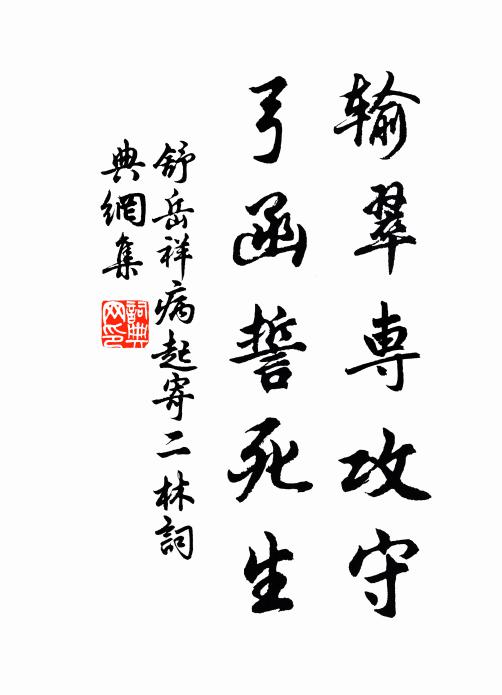 输翠專攻守
弓函誓死生
舒岳祥病起寄二林詞
典網集
詞典網印